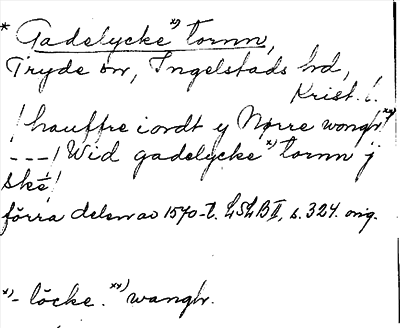 * Gadelycke x) tornn,
Tryde sn, Ingelstads hd,
Krist. l.
/hauffre iordt y Nørre wongh xx)
---/ Wid gadelycke x) tornn j
ske/
förra delen av 1570-t. LSLB II, s. 324. orig.
x) - löcke. xx) wangh.